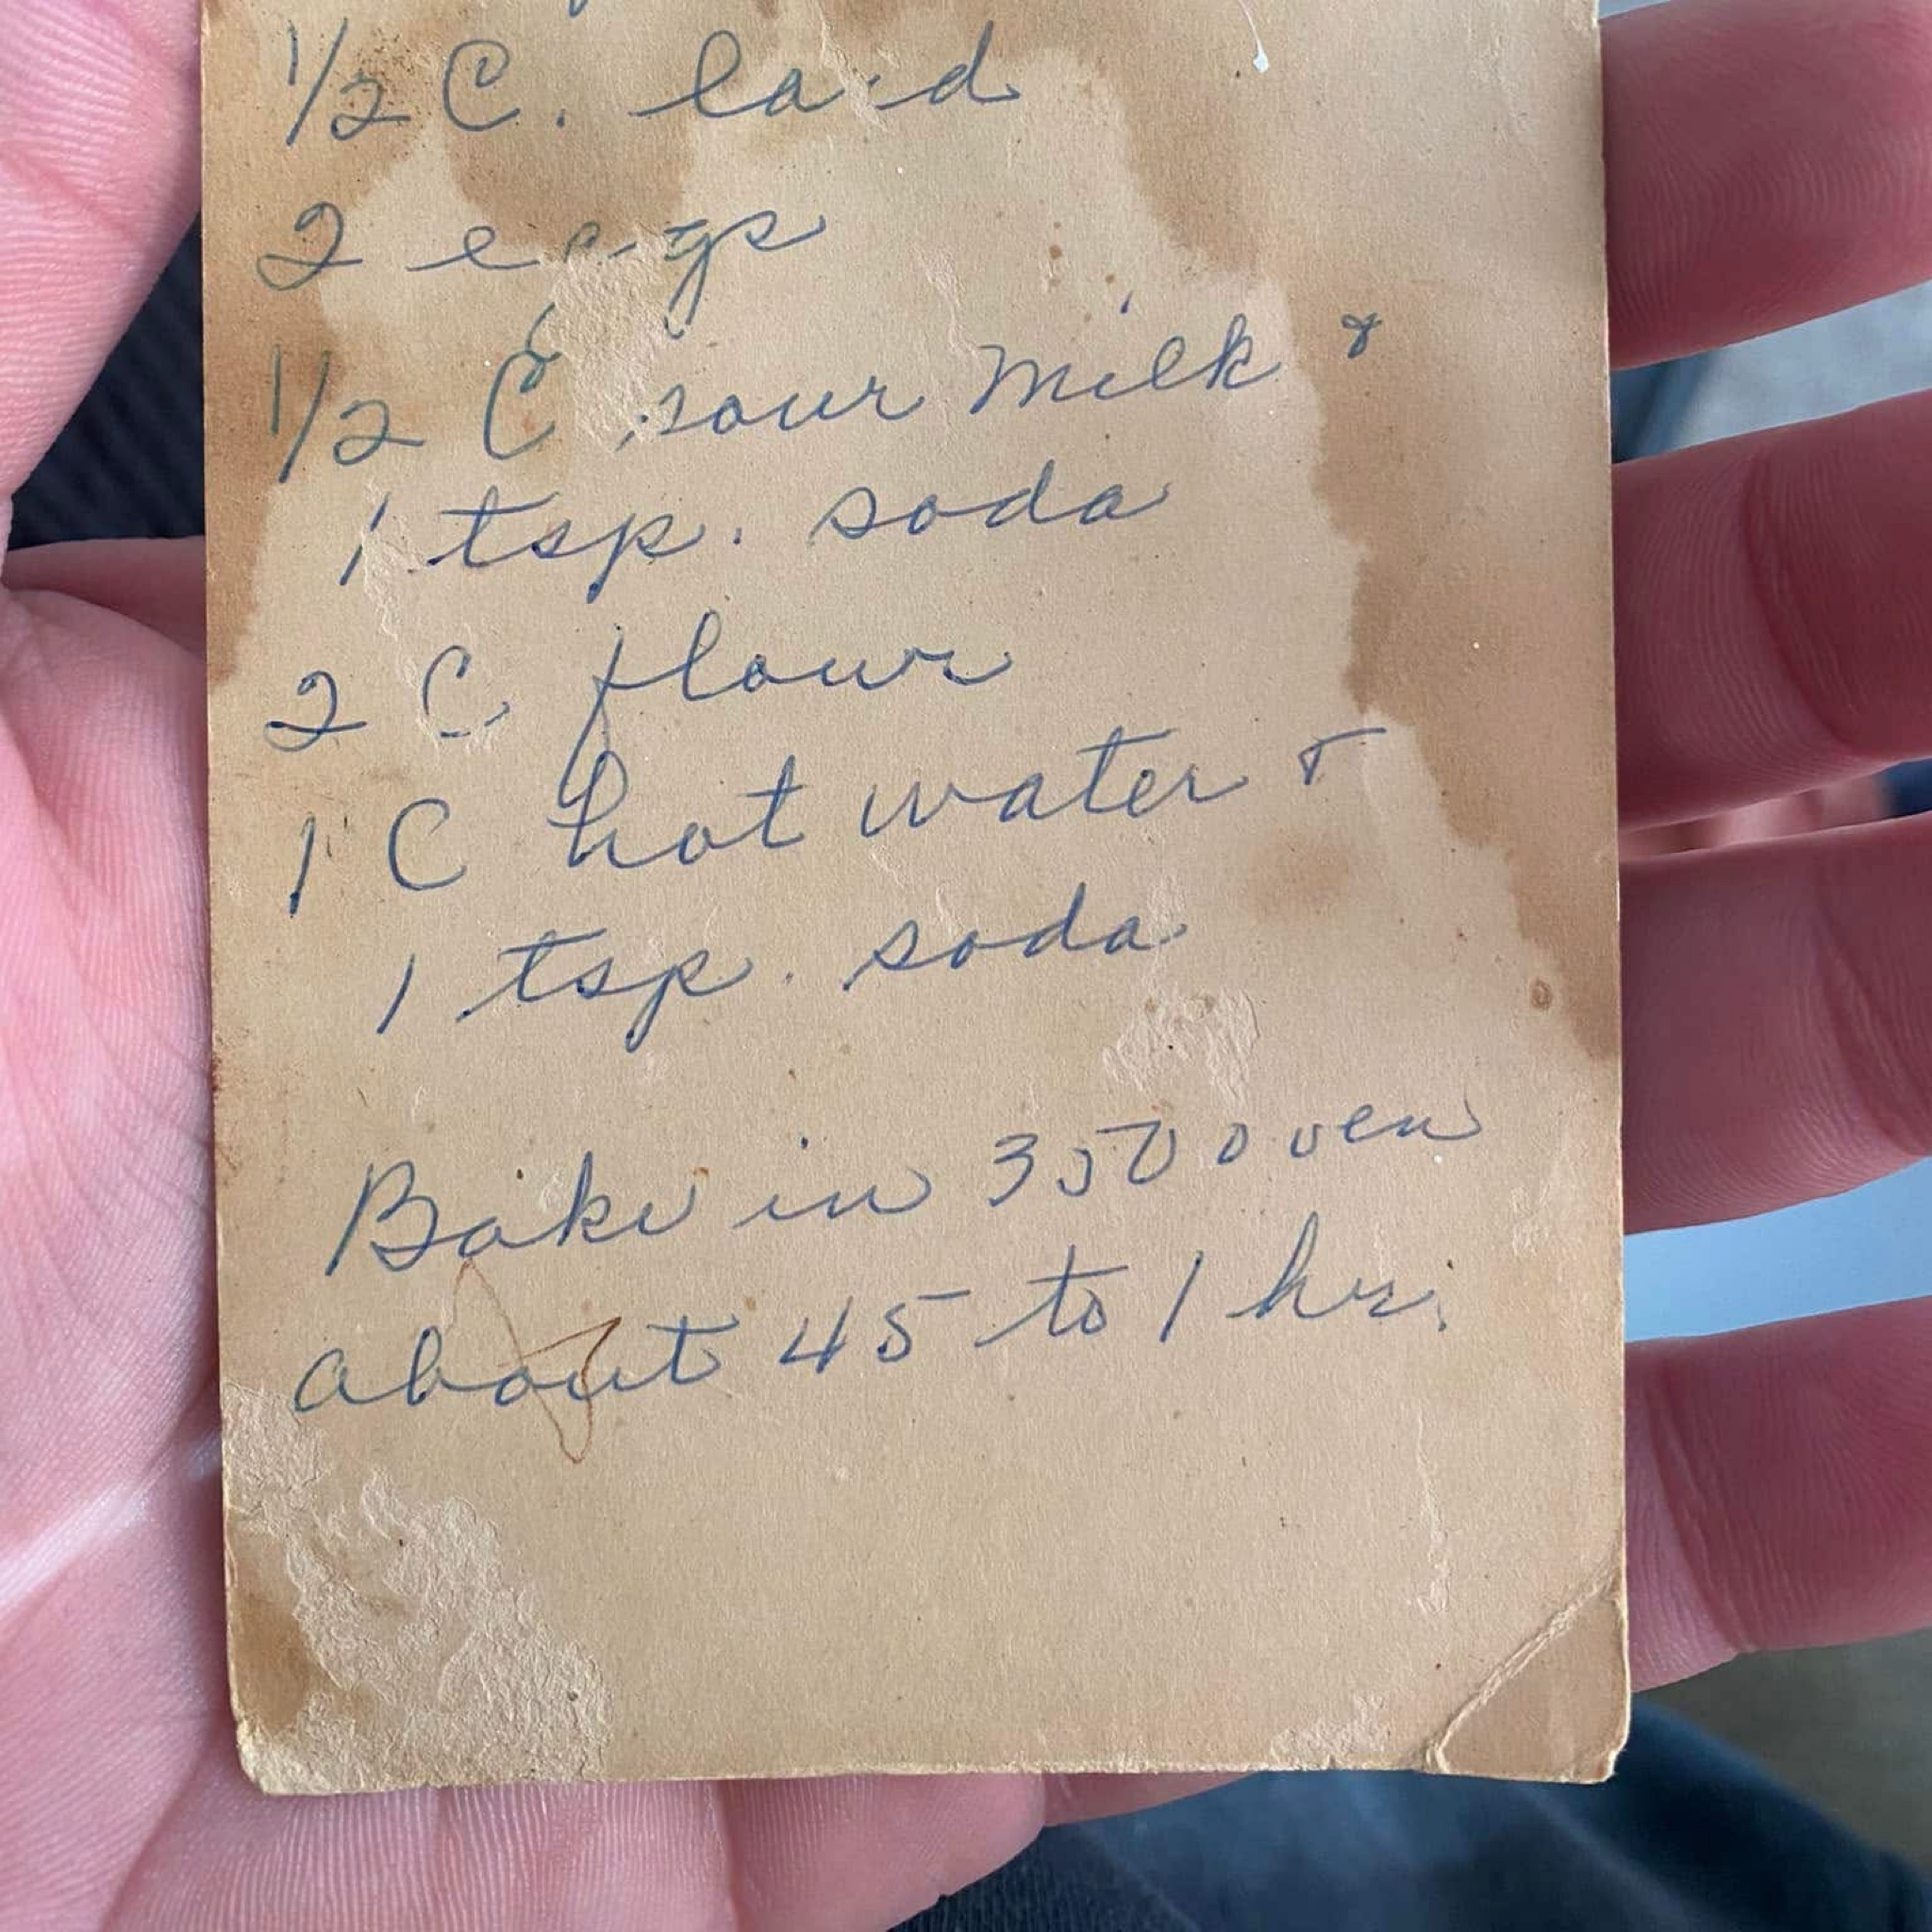 1/2 C. lard
2 eggs
1/2 C sour milk &
1 tsp. soda
2 C flour
1 C hot water &
1 tsp. soda
Bake in 350 oven
about 45 to 1 hr.